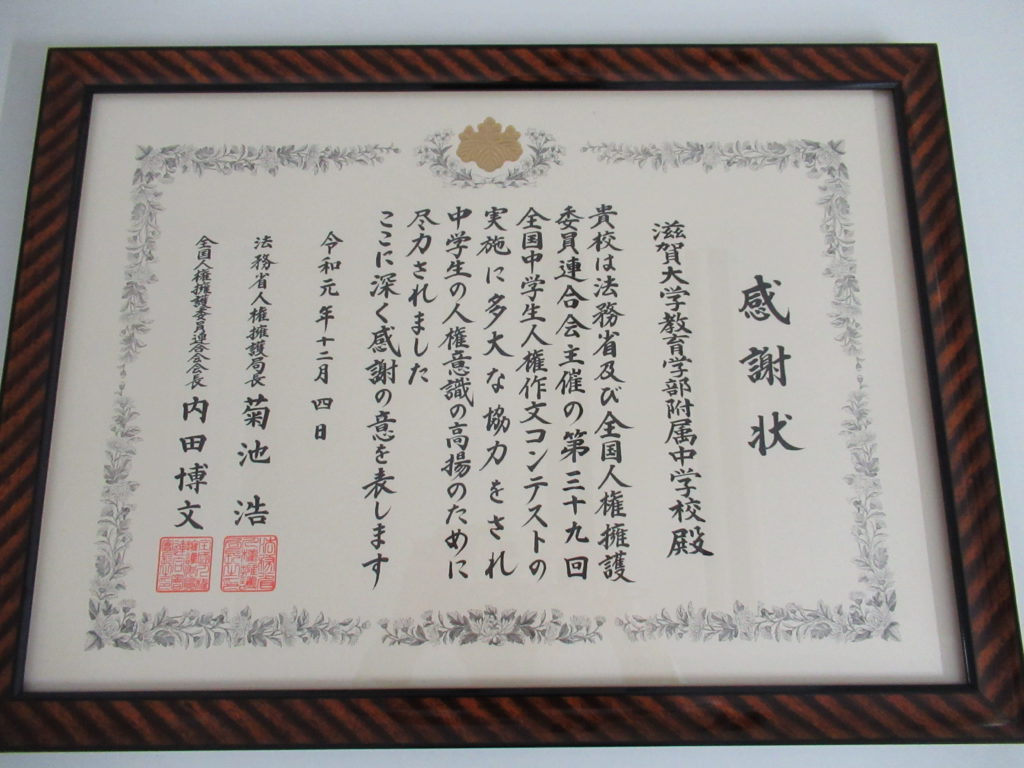 感謝状
滋賀大学教育学部附属中学校殿
貴校は法務省及び全国人権擁護
委員連合会主催の第三十九回
全国中学生人権作文コンテストの
実施に多大な協力をされ
中学生の人権意識の高揚のために
尽力されました
ここに深く感謝の意を表します
令和元年十二月四日
法務省人権擁護局長 菊池浩
全国人権擁護委員連合会会長 内田博文